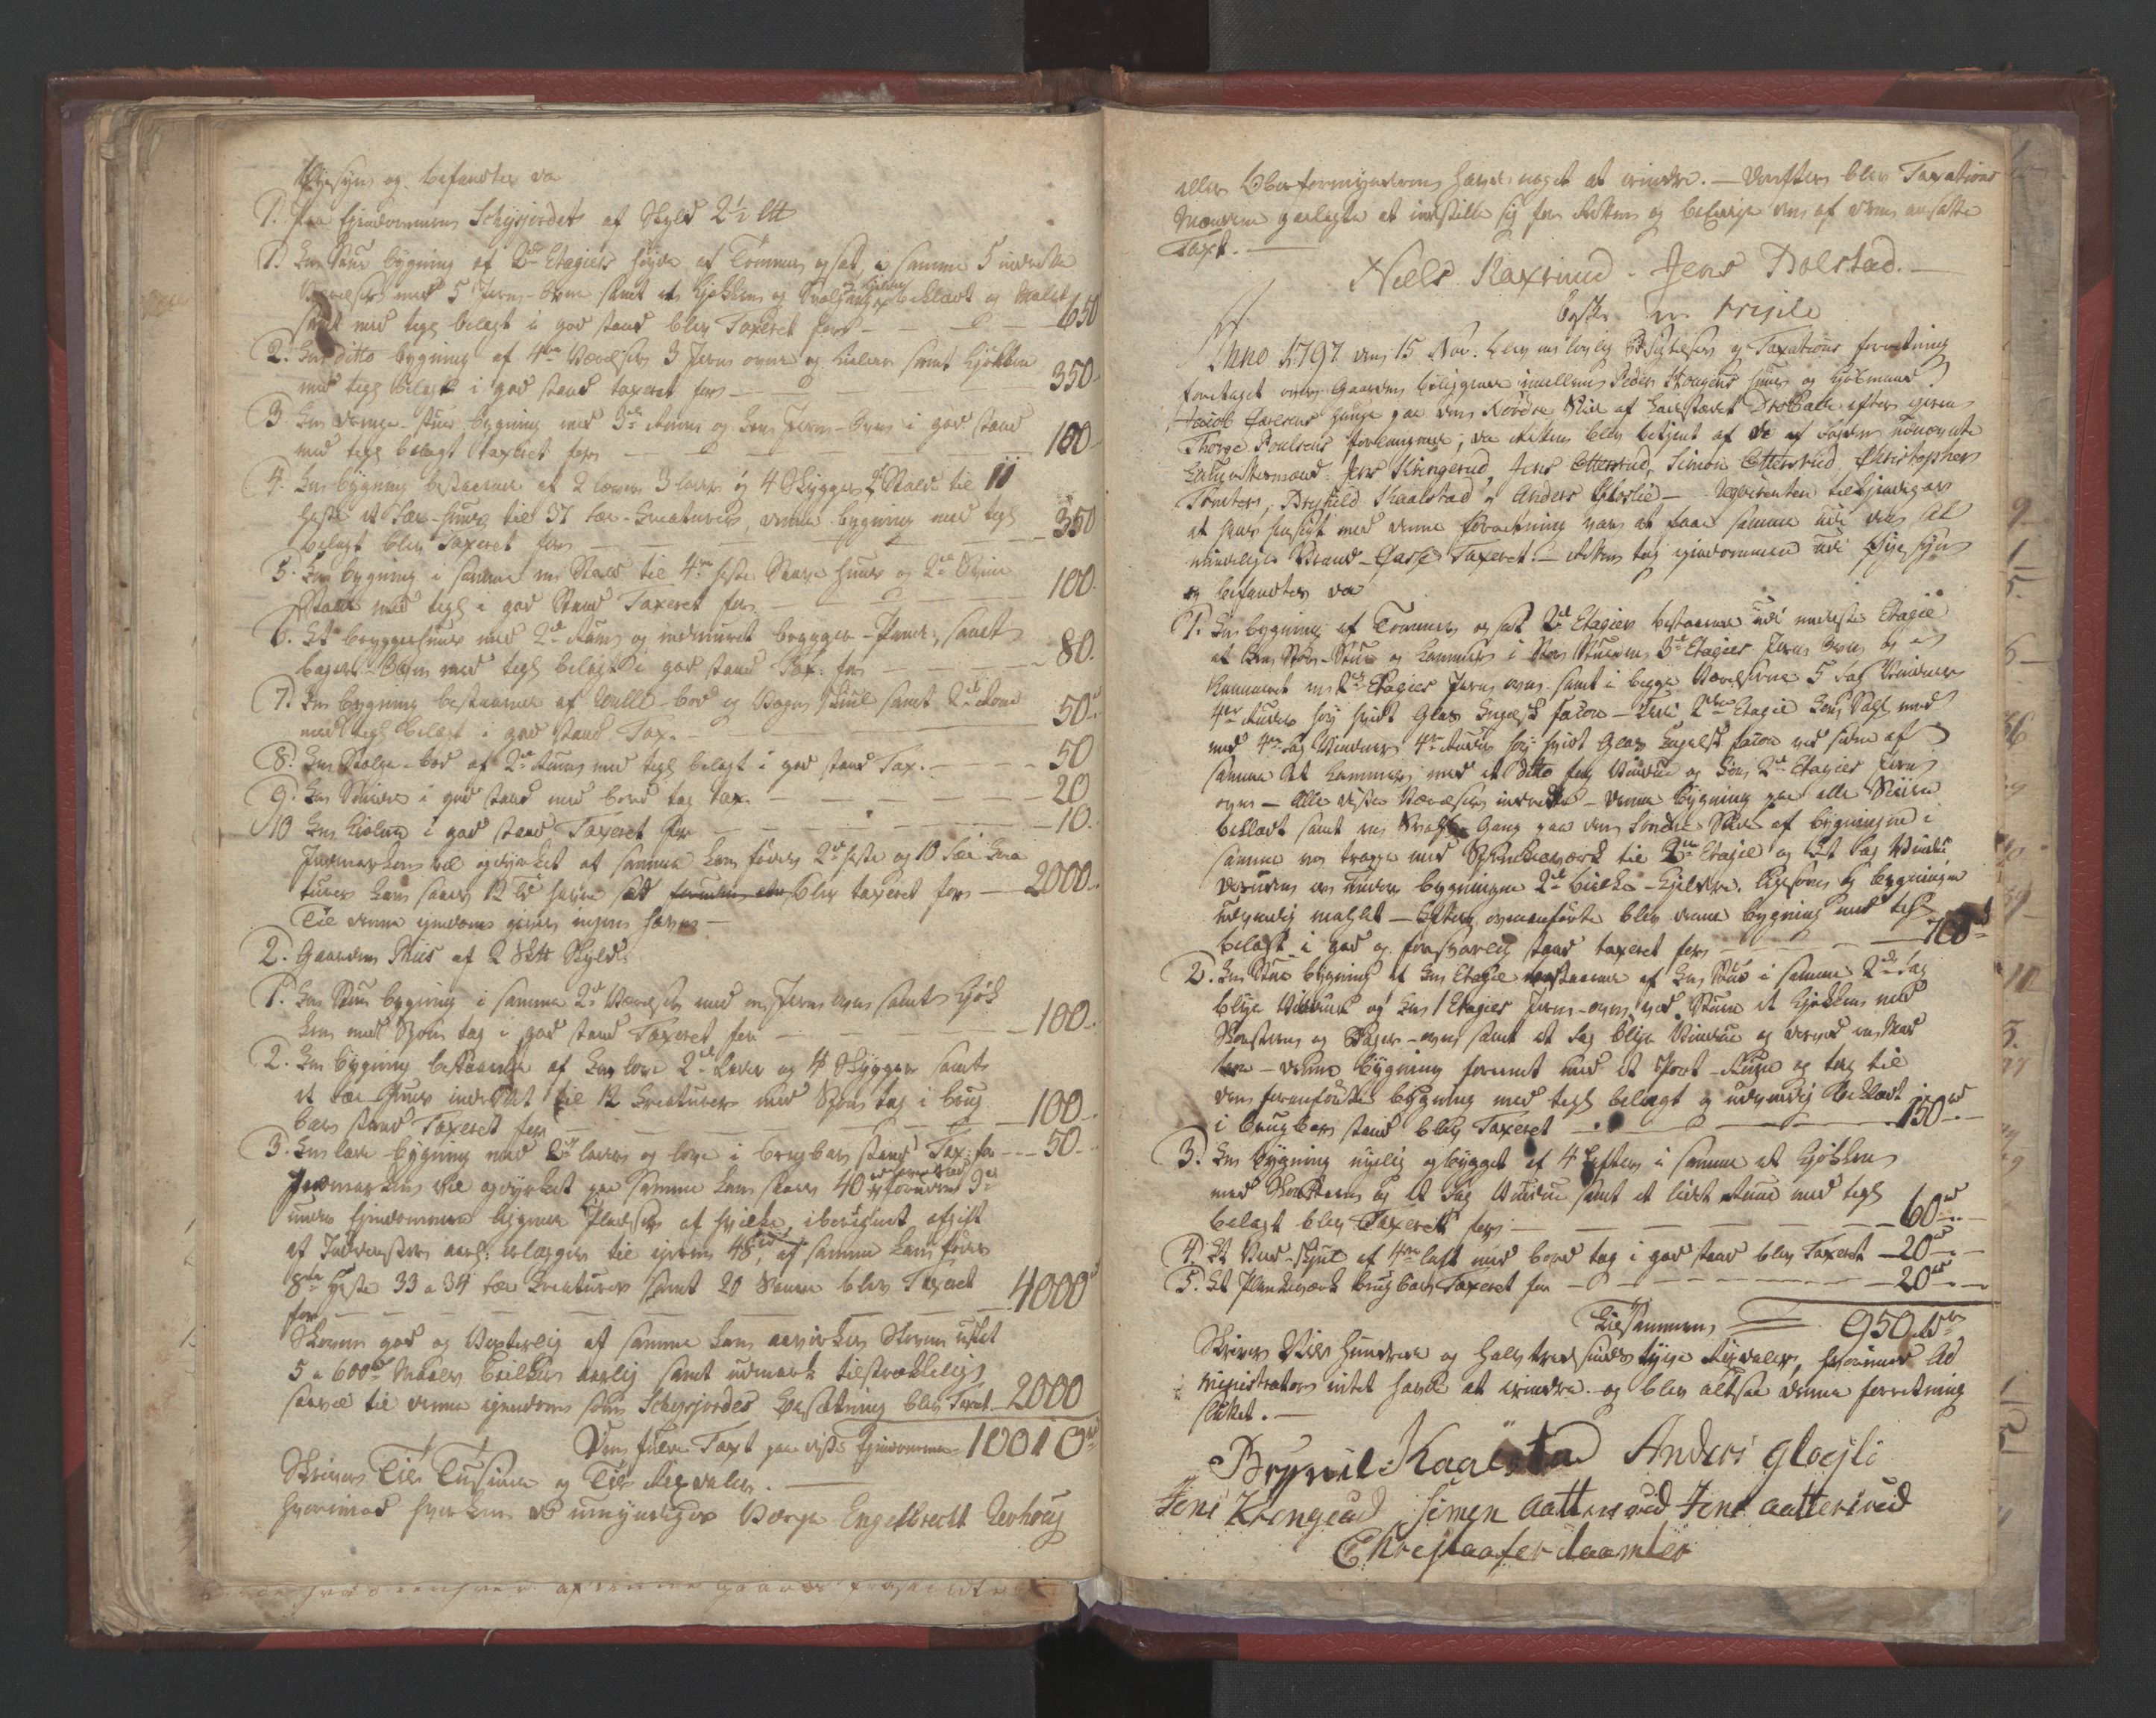 Øyesyn og befandtes da
1. Paa Ejendommen Schysjordet af Skyld 2½ Lt
1. En Stue bygning af 2de Etagiers høyde af Tømmer opsat, i samme 5 indredte
Værelser med 5 Jern-Ovne samt et Kjøkken og Svalgang beklædt og Malet
samt med tegl belagt i god stand blev Taxeret for — 650
2. En ditto bygning af 4re Værelser 3 Jern ovne og Kielder samt Kjøkken
med tegl belagt i god stand taxeret for — 350
3 En Drenge-stue bygning med 3de Rum og En Jern-Ovn i god stand
med tegl belagt taxeret for — 100
4. En bygning bestaaende af 2 lover 3 lader og 4 Skygger 2 Stalde til 11
heste et Fæe-huus til 37 fæe-Creaturer, denne bygning med tegl
belagt blev Taxeret for — 350
5. En bygning i samme en Stald til 4re heste Skaae huus og 2de Sviine
Stald med tegl i god Stand Taxeret for — 100.
6. Et bryggerhuus med 2de Rum og indmuret brygger-Pande, samt
bager-Ovn med tegl belagt i god stand Tax. for — 80.
7. En bygning bestaaende af Rulle-bod og Vogn skiul samt 2de Rum
med tegl belagt i god stand Tax. — 50
8. En Stolpe-bod af 2de Rum med tegl belagt i god stand Tax. — 50
9. En Smidie i god stand med bord tag tax. — 20
10 En Kiølne i god stand Taxeret for — 10.
Indmarken vel opdyrket af samme kan fødes 2de heste og 10 Fæe Crea
turer kan saaes 12 Tdr havre samt blev taxeret for — 2000
Til denne ejendom gives ingen havn —
2. Gaarden Huus af 2 Skt Skyld:
1. En Stue bygning i samme 2de Værelser med en Jern ovn samt Kjøk
ken med Spon tag i god stand Taxeret for — 100.
2. En bygning bestaaende af En love 2de Lader og 4 Skygger samt
et fæe Huus indrettet til 12 Creaturer med Spon tag i brug
bar stand Taxeret for — 100
3. En lade bygning med 2de lader og love i brugbar stand Tax. for — 50.
Indmarken vel opdyrket paa Samme kan saaes 40 foruden 3de
under Ejendommen liggende Pladser af hvilke, iberegnet afgift
af Inderster aarl: erlægges til ejeren 48 rd, af samme kan fødes
8te Heste 33 a 34 fæe Creaturer samt 20 Smaae blev Taxeret
for — 4000
Skoven god og Vexterlig af samme kan aarvirkes Skoven ustet
5 a 600de Maaler Bielker aarlig samt udmark tilstrækkelig
saavel til denne ejendom som Schysjordes Besætning blev Taxt. 2000
Den fulde Taxt paa disse Ejendomme — 10010 rd
Skriver Tiie Tusinde og Tiie Rixdaler. —
hvorimod hverken de umyndiges Værge Engelbrecht Revhoug
eller Oberformynderen havde noget at erindre. — Derefter blev Taxations
Mændene paalagte at indstille sig for Retten og beedige den af dem ansatte
Taxt. —
Niels Raxrud. Jens Bolstad. —
Anno 1797 den 15 Nov. blev en lovlig Besigtelses og Taxations forretning
foretaget over Gaarden beliggende imellem Peder Hougens huus og Kjøbmand
Jacob Carlsens Hauge paa den Nordre Side af Ladestædet Drøbak efter ejeren
Thorge Poulsens forlangende; da Retten blev betjent af de af Fogden udnævnte
Laugrettesmænd: Jens Kringerud, Jens Otterstud, Simon Otterstud Christopher
Tomter, Brynild Skaalstad, Anders Gloslie — Reqvirenten tilkjendegav
at hans hensigt med denne forretning var at faae samme udi den Al
mindelige Brand-Casse Taxeret. — Retten tog ejendommen udi Øye syn
og befandtes da
1. En bygning af Tømmer opsat 2de Etagier bestaaende udi nederste Etagie
af En Stor-Stue og Kammer i Stor Stuen en 3de Etagier Jern Ovn og i
Kammeret en 2de Etagier Jern ovn samt i begge Værelserne 5 Fag Vinduer
4re Ruder høy hvidt Glas Engelsk facon — udi 2den Etagie En Sahl med
med 4re Fag Vinduer 4re Ruder høy hvidt Glas Engelsk facon ved siden af
samme et Kammer med et ditto fag Vindue og En 2de Etagies Jern
ovn — Alle disse Værelser indredte — denne bygning paa alle Siider
beklædt samt en Svahle Gang paa den Søndre Side af bygningen i
samme en trappe med Sprinkelværk til 2den Etagie og Et fag Vindue
desuden er under bygningen 2de bielke-kieldre. ligesom og bygningen
udvendig mahlet — Efter ovenanførte blev denne bygning med tegl
belagt i god og forsvarlig stand taxeret for — 700 rd
2. En Stue bygning af Een Etagie bestaaende af En Stue i samme 2de Fag
blye Vinduer og En 1 Etagies Jern-ovn, ved Stuen et Kjøkken med
Skorsteen og Bager-ovn samt et Fag blye Vindue og derved en Kam
mer — denne bygning forenet med et Port-Rum og tag til
den foranførte bygning med tegl belagt og udvendig beklædt
i brugbar stand blev Taxeret — 150 rd
3. En bygning nyelig opbygget af 4 lafter i samme et Kjøkken
med Skorsteen og Et Fag Vindue samt et lidet Rum med tegl
belagt blev Taxeret for — 60 rd
4. Et Ved-skjul af 4re laft med bord tag i god stand blev Taxeret — 20 rd —
5. Et Plankeværk brugbar Taxeret for — 20 rd —
Tilsammen — 950 rd
Skriver Niie Hundrede og halvtredsinds tyve Rixdaler, hvorimod Ad
ministrator intet havde at erindre. og blev altsaa denne forretning
sluttet. —
Brynnil Kaalsta Anders gloesli
Jens Krengerud Simen aatterud Jens aatterud
Chrestaafer taamter